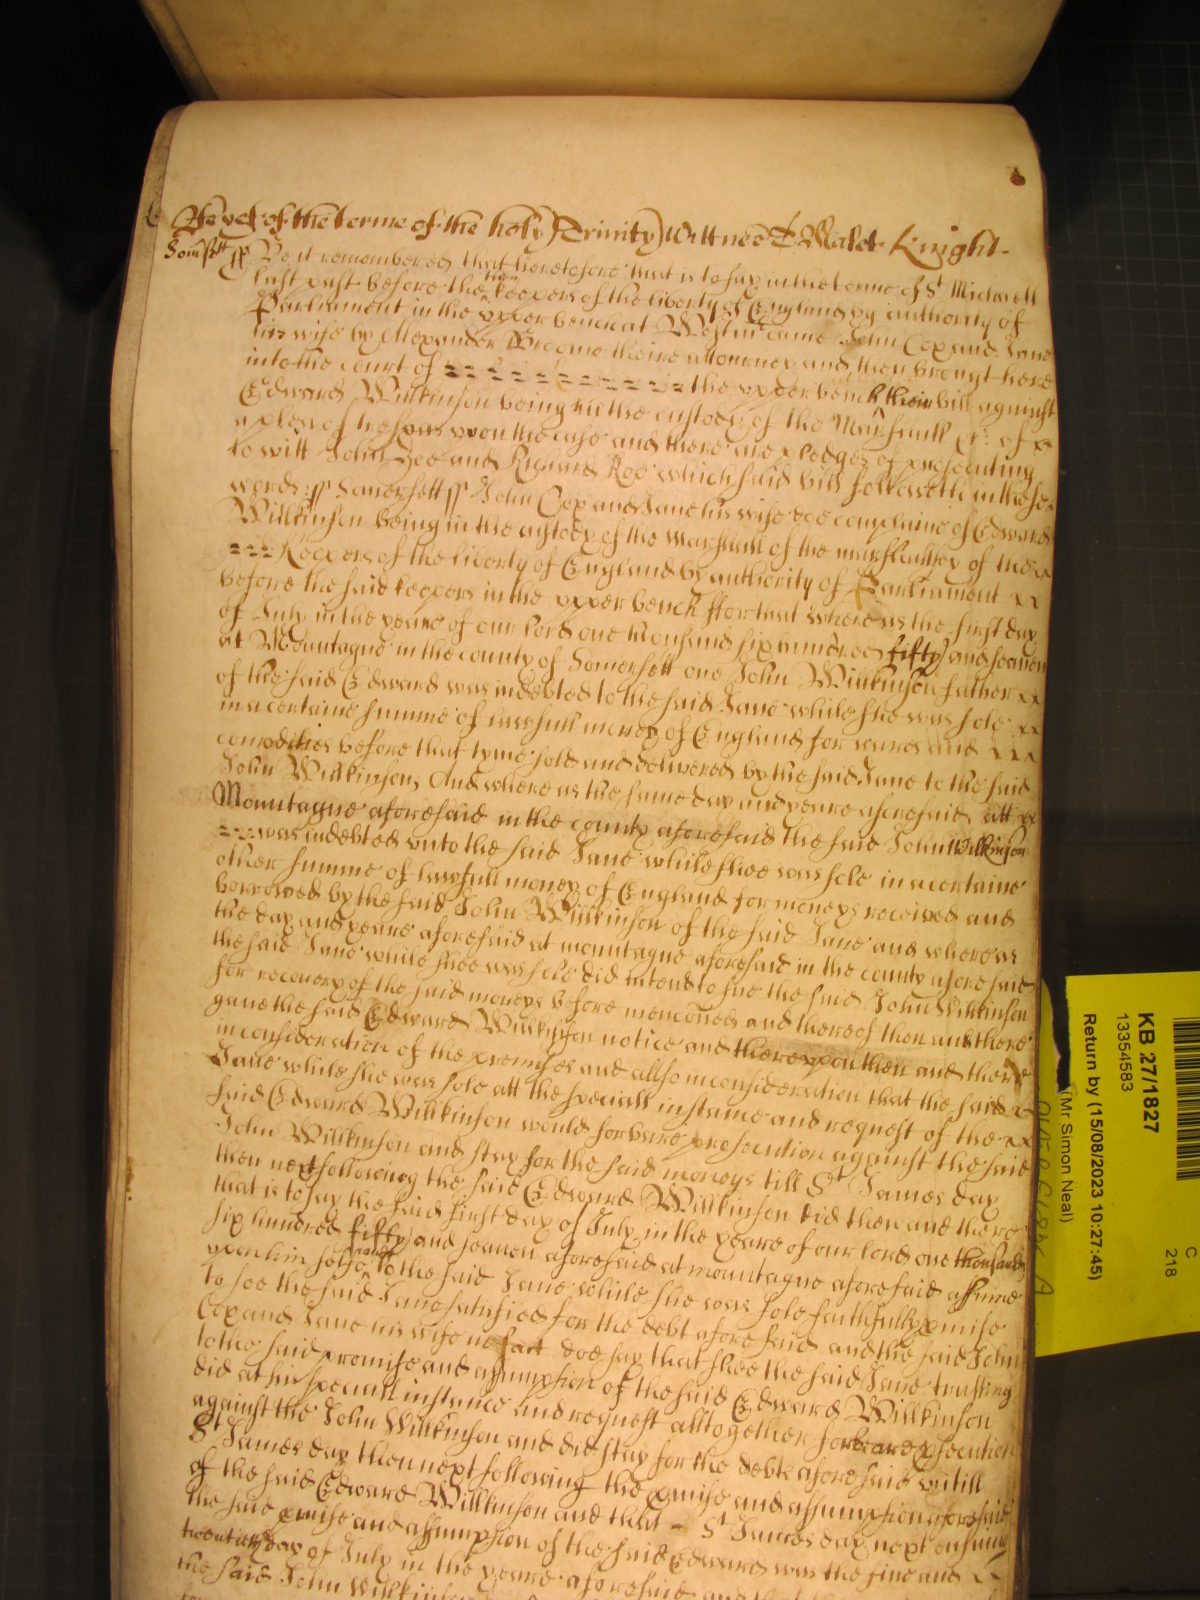 As yet of the terme of the holy Trinity Wittnes T Wald Knight.
Somsett ss Be it remembered that heretofore that is to say in the terme of St Michaell
last past before the then keepers of the liberty of England by authority of
Parliament in the upper bench at Westmr came John Cox and Jane
his wife by Alexander Broome theire attourney and then brought here
into the court of the upper bench their bill against
Edward Willkinson being in the custody of the Marshall &c: of
a plea of trespass upon the case and there are pledges of prosecuting
to witt John Doe and Richard Roe which said bill followeth in these
words ss Somersett ss John Cox and Jane his wife doe complaine of Edward
Willkinson being in the custody of the marshall of the marshallsey of the
Keepers of the liberty of England by authority of Parliament
before the said keepers in the upper bench ffor that whereas the first day
of July in the yeare of our lord one thousand six hundred fifty and seaven
at Mountague in the county of Somersett one John Willkinson father
of the said Edward was indebted to the said Jane while she was sole
in a certaine summe of lawfull money of England for wares and
comodities before that tyme sold and delivered by the said Jane to the said
John Willkinson, And whereas the same day and yeare aforesaid att
Mountague aforesaid in the county aforesaid the said John Wilkinson
was indebted unto the said Jane while shee was sole in a certaine
other summe of lawfull money of England for moneys received and
borrowed by the said John Willkinson of the said Jane and whereas
the day and yeare aforesaid at mountague aforesaid in the county aforesaid
the said Jane while shee was sole did intend to sue the said John Willkinson
for recovery of the said moneys before menconed and thereof then and there
gave the said Edward Willkinson notice and thereupon then and there
in consideration of the premises and allso in consideration that the said
Jane while she was sole att the speciall instance and request of the
said Edward Willkinson would forbeare prosecution against the said
John Willkinson and stay for the said moneys till St James day
then next following the said Edward Willkinson did then and there
that is to say the said first day of July in the yeare of our lord one thousand
six hundred fifty and seaven aforesaid at mountague aforesaid assume
upon him selfe and to the said Jane while she was sole faithfully pmise
to see the said Jane satisfied for the debt aforesaid and the said John
Cox and Jane his wife in fact doe say that shee the said Jane trusting
to the said promise and assumption of the said Edward Willkinson
did at his speciall instance and request alltogether forbeare psecution
against the John Willkinson and did stay for the debt aforesaid untill
St James day then next following the pmise and assumption aforesaid
of the said Edward Willkinson and that St James day next ensuing
the said pmise and assumpsion of the said Edward was the five and
twentieth day of July in the yeare aforesaid and that
the said John Willkinson
KB 27/1827
13354583
Return by (15/08/2023 10:27:45)
(Mr Simon Neal)
C
218